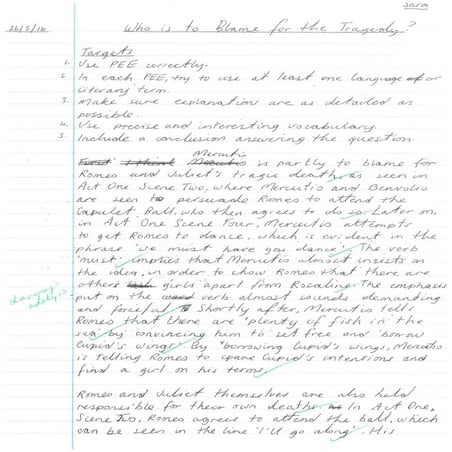 Sara
26/5/16 Who is to Blame for the Tragedy?
Targets
1. Use PEE correctly.
2. In each PEE, try to use at least one language or
literary term.
3. Make sure explanations are as detailed as
possible.
4. Use precise and interesting vocabulary.
5. Include a conclusion answering the question.
Mercutio
is partly to blame for
Romeo and Juliet's tragic death, as seen in
Act One Scene Two, where Mercutio and Benvolio
are seen to persuade Romeo to attend the
Capulet Ball, who then agrees to do so. Later on,
in Act One Scene Four, Mercutio attempts
to get Romeo to dance, which is evident in the
phrase 'we must have you dance'. The verb
'must' implies that Mercutio almost insists on
the idea, in order to show Romeo that there are
others girls apart from Rosaline. The emphasis
put on the verb almost sounds demanding
and forceful. Shortly after, Mercutio tells
Romeo that there are 'plenty of fish in the
sea' by convincing him to set free and 'borrow
Cupid's wings'. By 'borrowing Cupid's wings, Mercutio
is telling Romeo to spare Cupid's intensions and
find a girl on his terms.
Romeo and Juliet themselves are also held
responsible for their own deaths. In Act One,
Scene Two, Romeo agrees to attend the ball, which
can be seen in the line 'I'll go along'. His